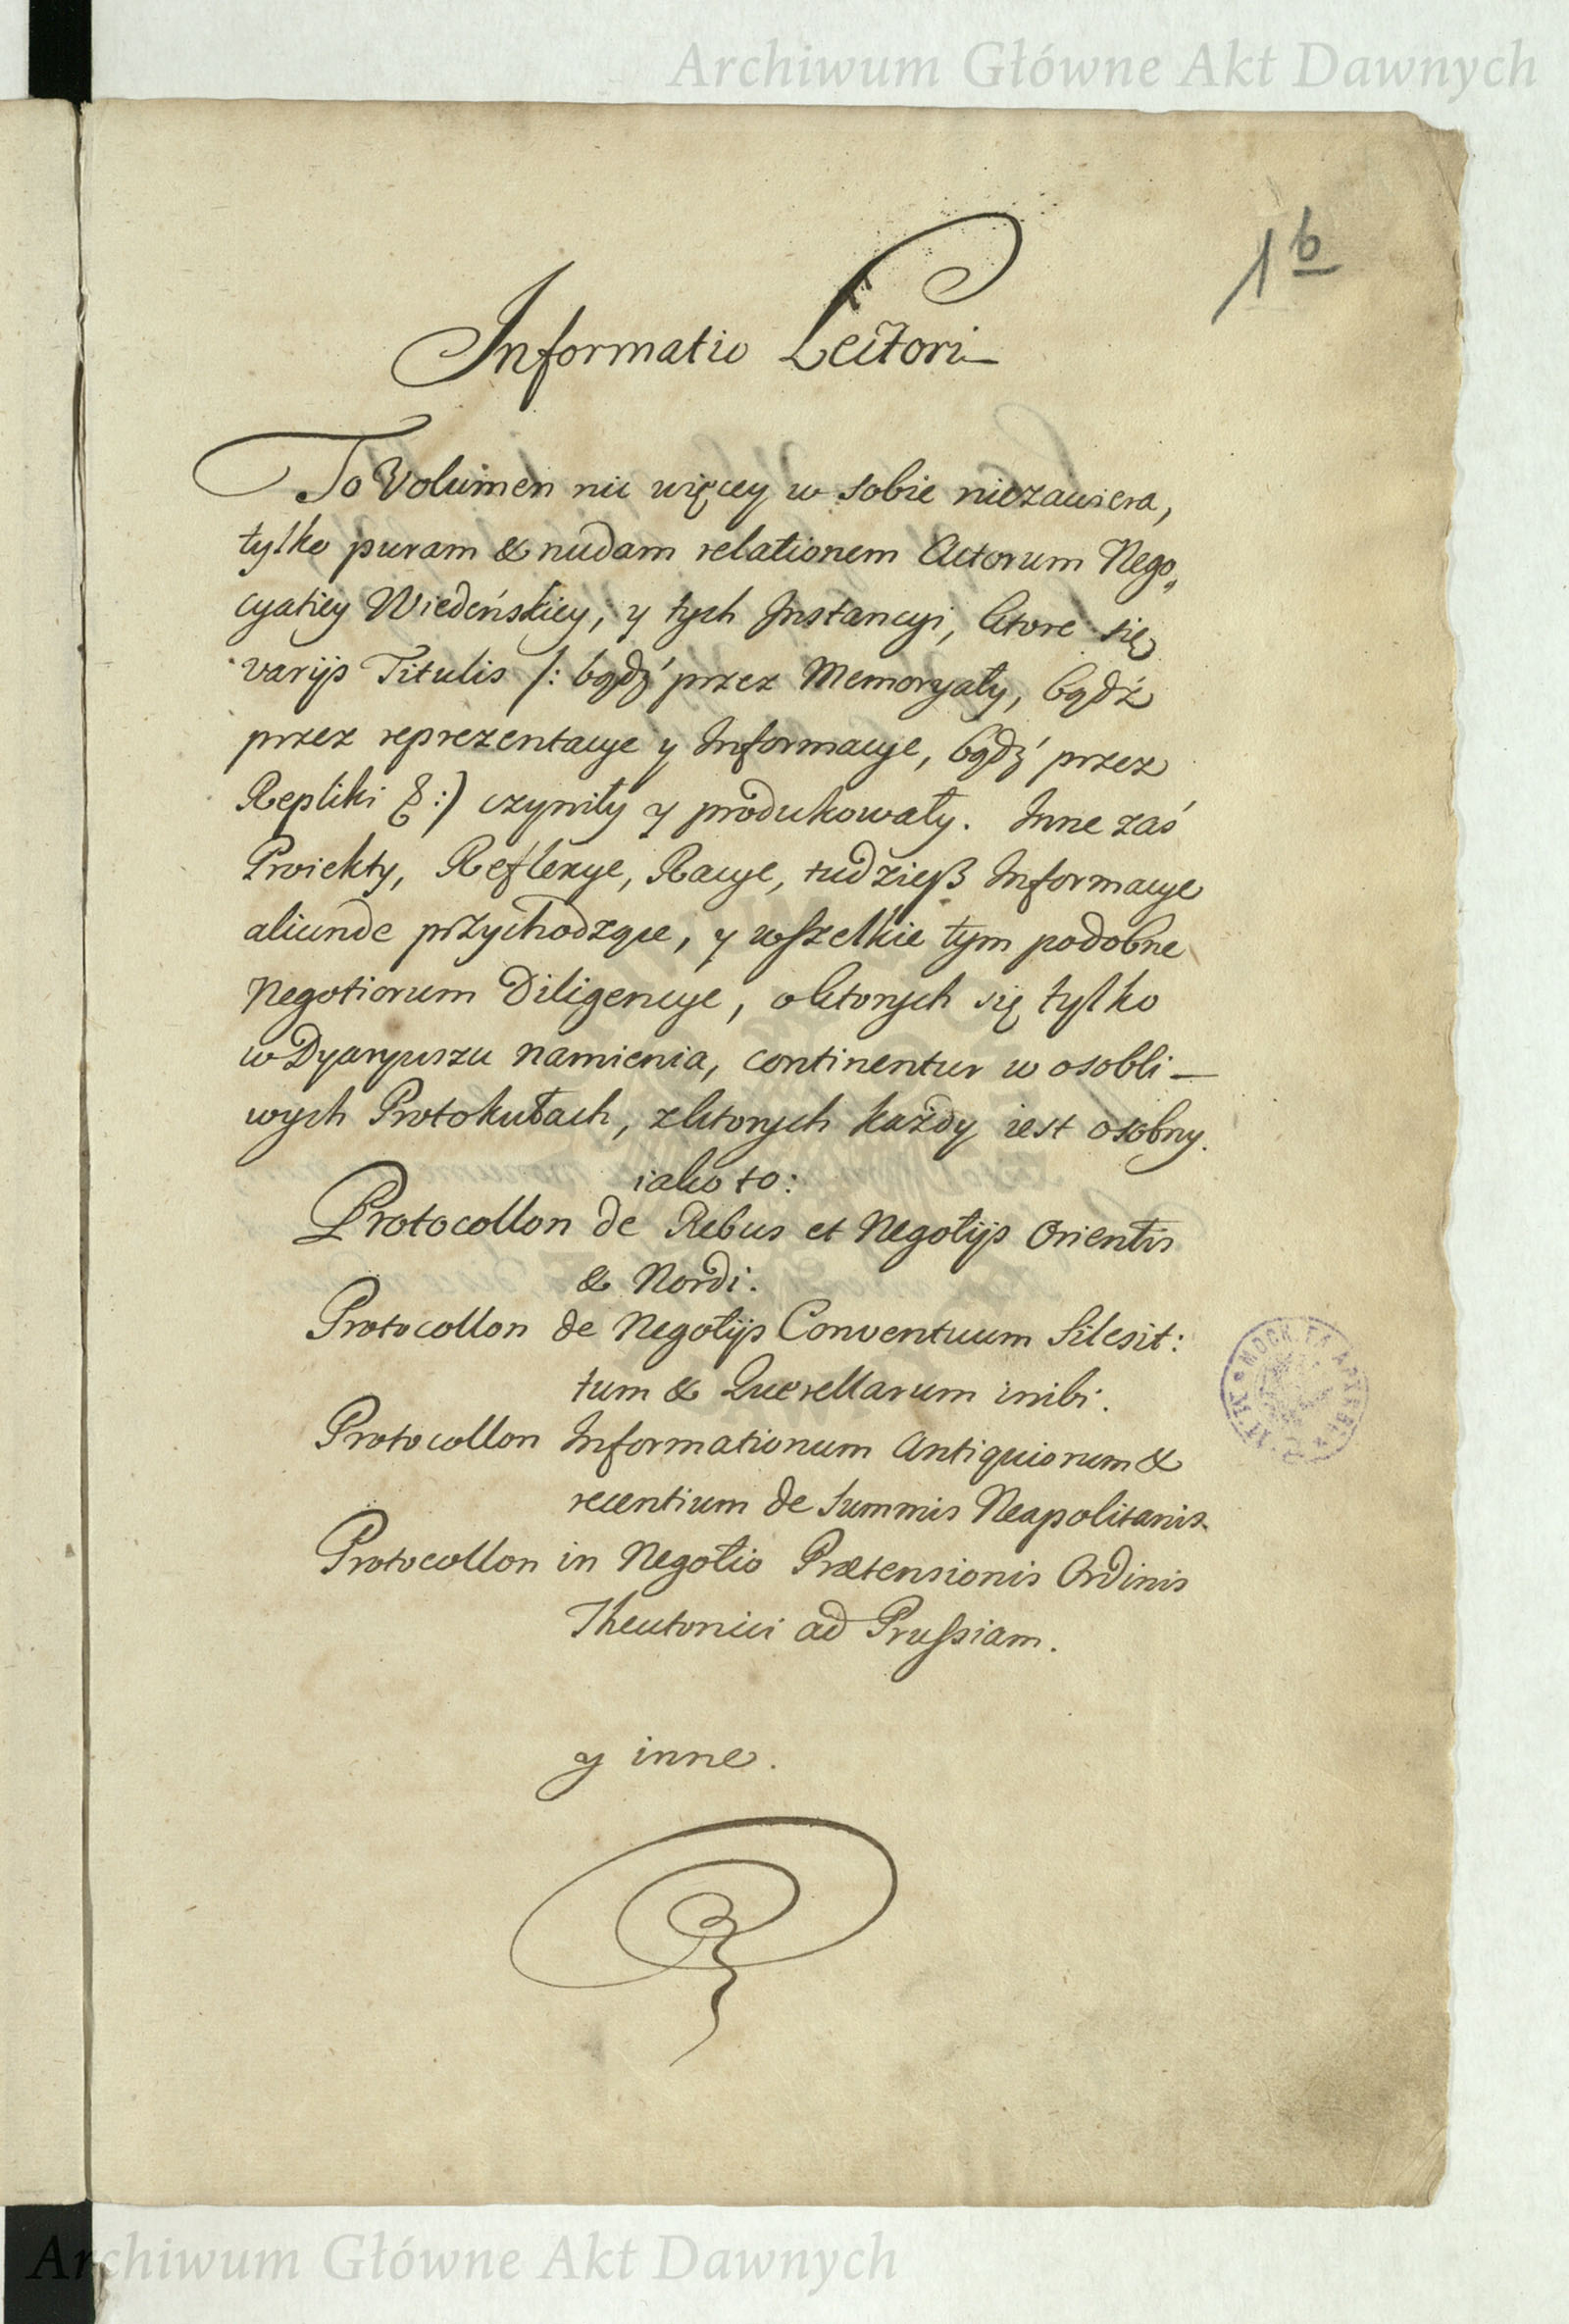 Archiwum Główne Akt Dawnych
1 b
Informatio Lectori
To Volumen nic więcey w sobie niezawiera,
tylko puram & nudam relationem Actorum Nego„
cyatiey Wiedeńskiey, y tych Instancyi, ktore się
varijs Titulis /: bądź przez Memoryały, bądź
przez reprezentacye y Informacye, bądź przez
Repliki &:) czyniły y produkowały. Inne zaś
Proiekty, Reflexye, Racye, tudzieß Informacye
aliunde przychodzące, y wszelkie tym podobne
Negotiorum Diligencye, o ktorych się tylko
w Dyaryuszu namienia, continentur w osobli—
wych Protokułach, z ktorych każdy iest osobny.
iako to:
Protocollon de Rebus et Negotijs Orientis
& Nordi.
Protocollon de Negotijs Conventuum Silesit:
tum & Querellarum inibi.
Protocollon Informationum Antiquiorum &
recentium de Summis Neapolitanis.
Protocollon in Negotio Prætensionis Ordinis
Theutonici ad Prussiam.
y inne.
Archiwum Główne Akt Dawnych